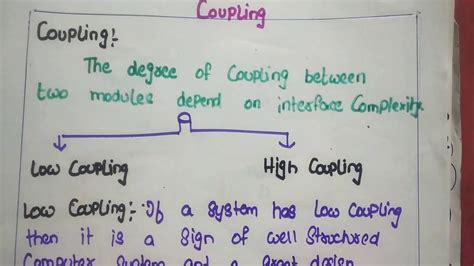 Coupling
Coupling:-
The degree of Coupling between
two modules depend on interface Complexity.
Low Coupling High Coupling
Low Coupling:- If a system has Low Coupling
then it is a sign of well structured
Computer system and a great design